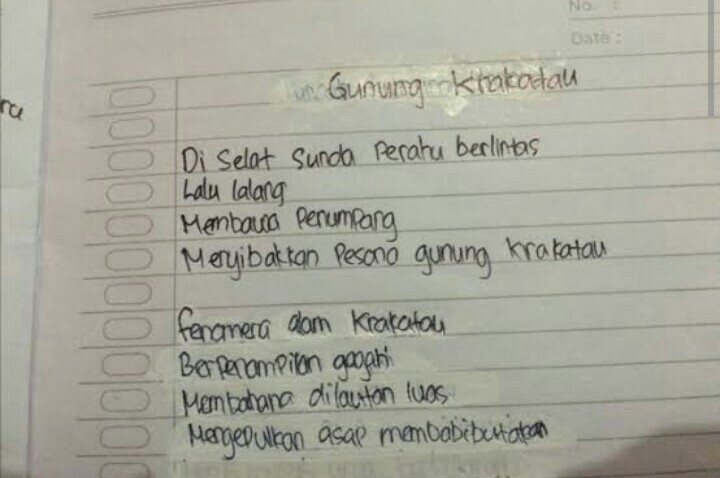 No. :
Date :
ra
Gunung Krakatau
Di Selat Sunda Perahu berlintas
Lalu lalang
Membawa Penumpang
Menyibakkan Pesona gunung krakatau
fenomena alam Krakatau
Berpenampilan gagah
Membahana dilautan luas
Mengepulkan asap membabibutakan